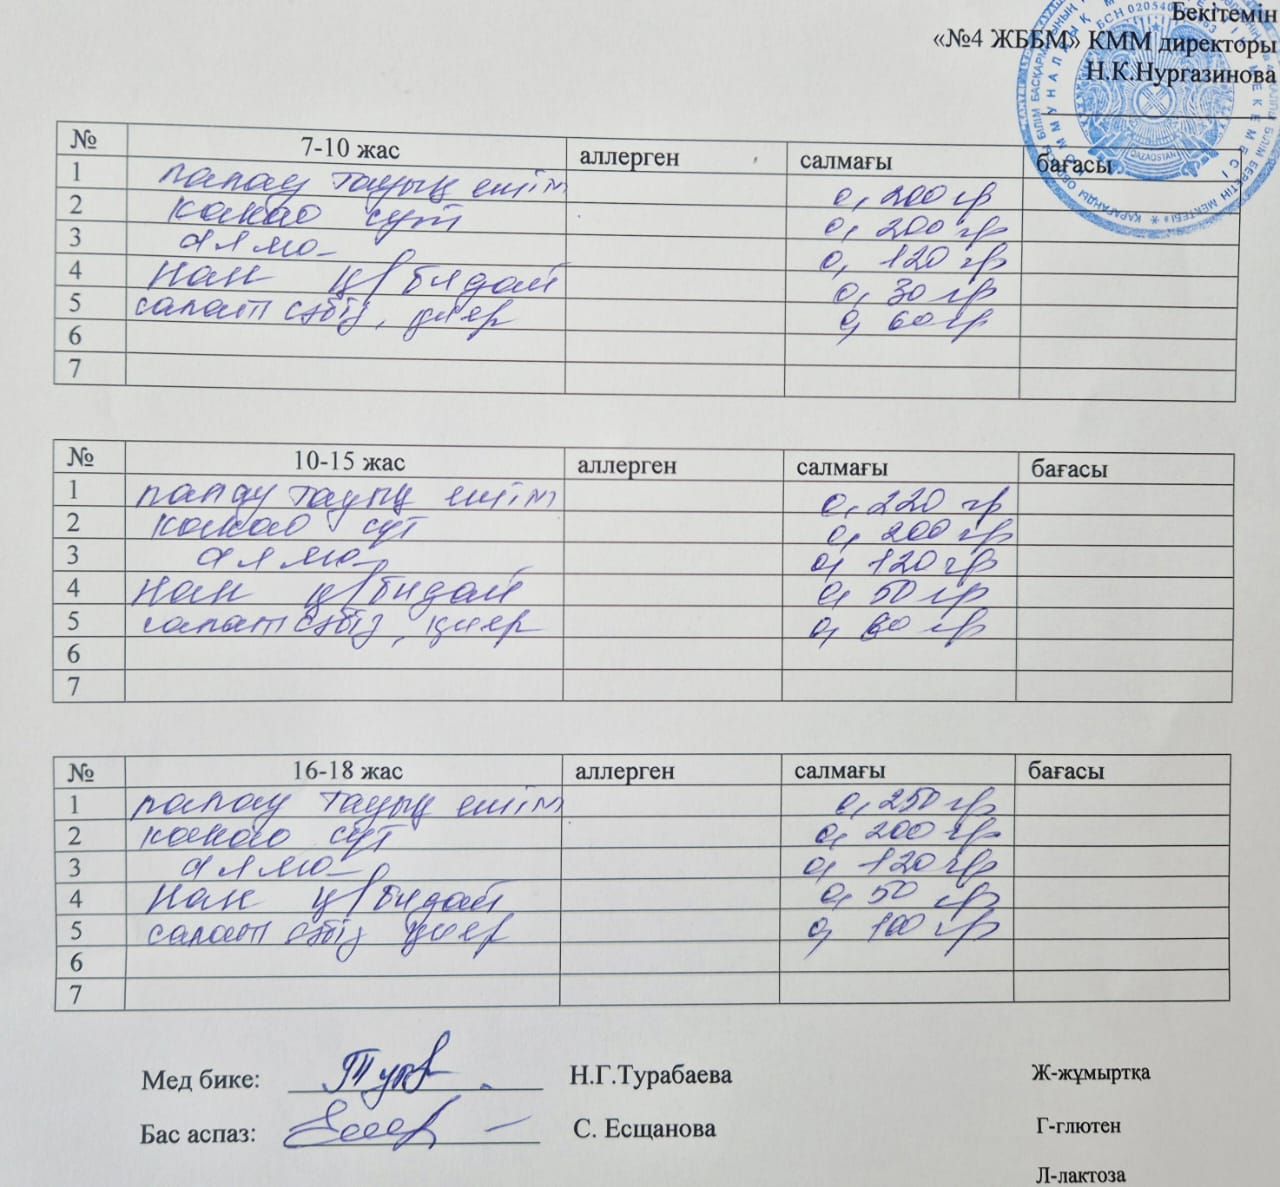 Бекітемін
«№4 ЖББМ» КММ директоры
Н.К.Нургазинова
№ 7-10 жас аллерген салмағы бағасы
1 палау тауық етім 0,200 гр
2 какао сүт 0,200 гр
3 алма 0,120 гр
4 Нан ц/бидай 0,30 гр
5 салат сәбіз, қияр 0,60 гр
6
7
№ 10-15 жас аллерген салмағы бағасы
1 палау тауық етім 0,220 гр
2 какао сүт 0,200 гр
3 алма 0,120 гр
4 Нан ц/бидай 0,50 гр
5 салат сәбіз, қияр 0,60 гр
6
7
№ 16-18 жас аллерген салмағы бағасы
1 палау тауық етім 0,250 гр
2 какао сүт 0,200 гр
3 алма 0,120 гр
4 Нан ц/бидай 0,50 гр
5 салат сәбіз қияр 0,100 гр
6
7
Мед бике: Н.Г.Турабаева Ж-жұмыртқа
Бас аспаз: С. Есщанова Г-глютен
Л-лактоза